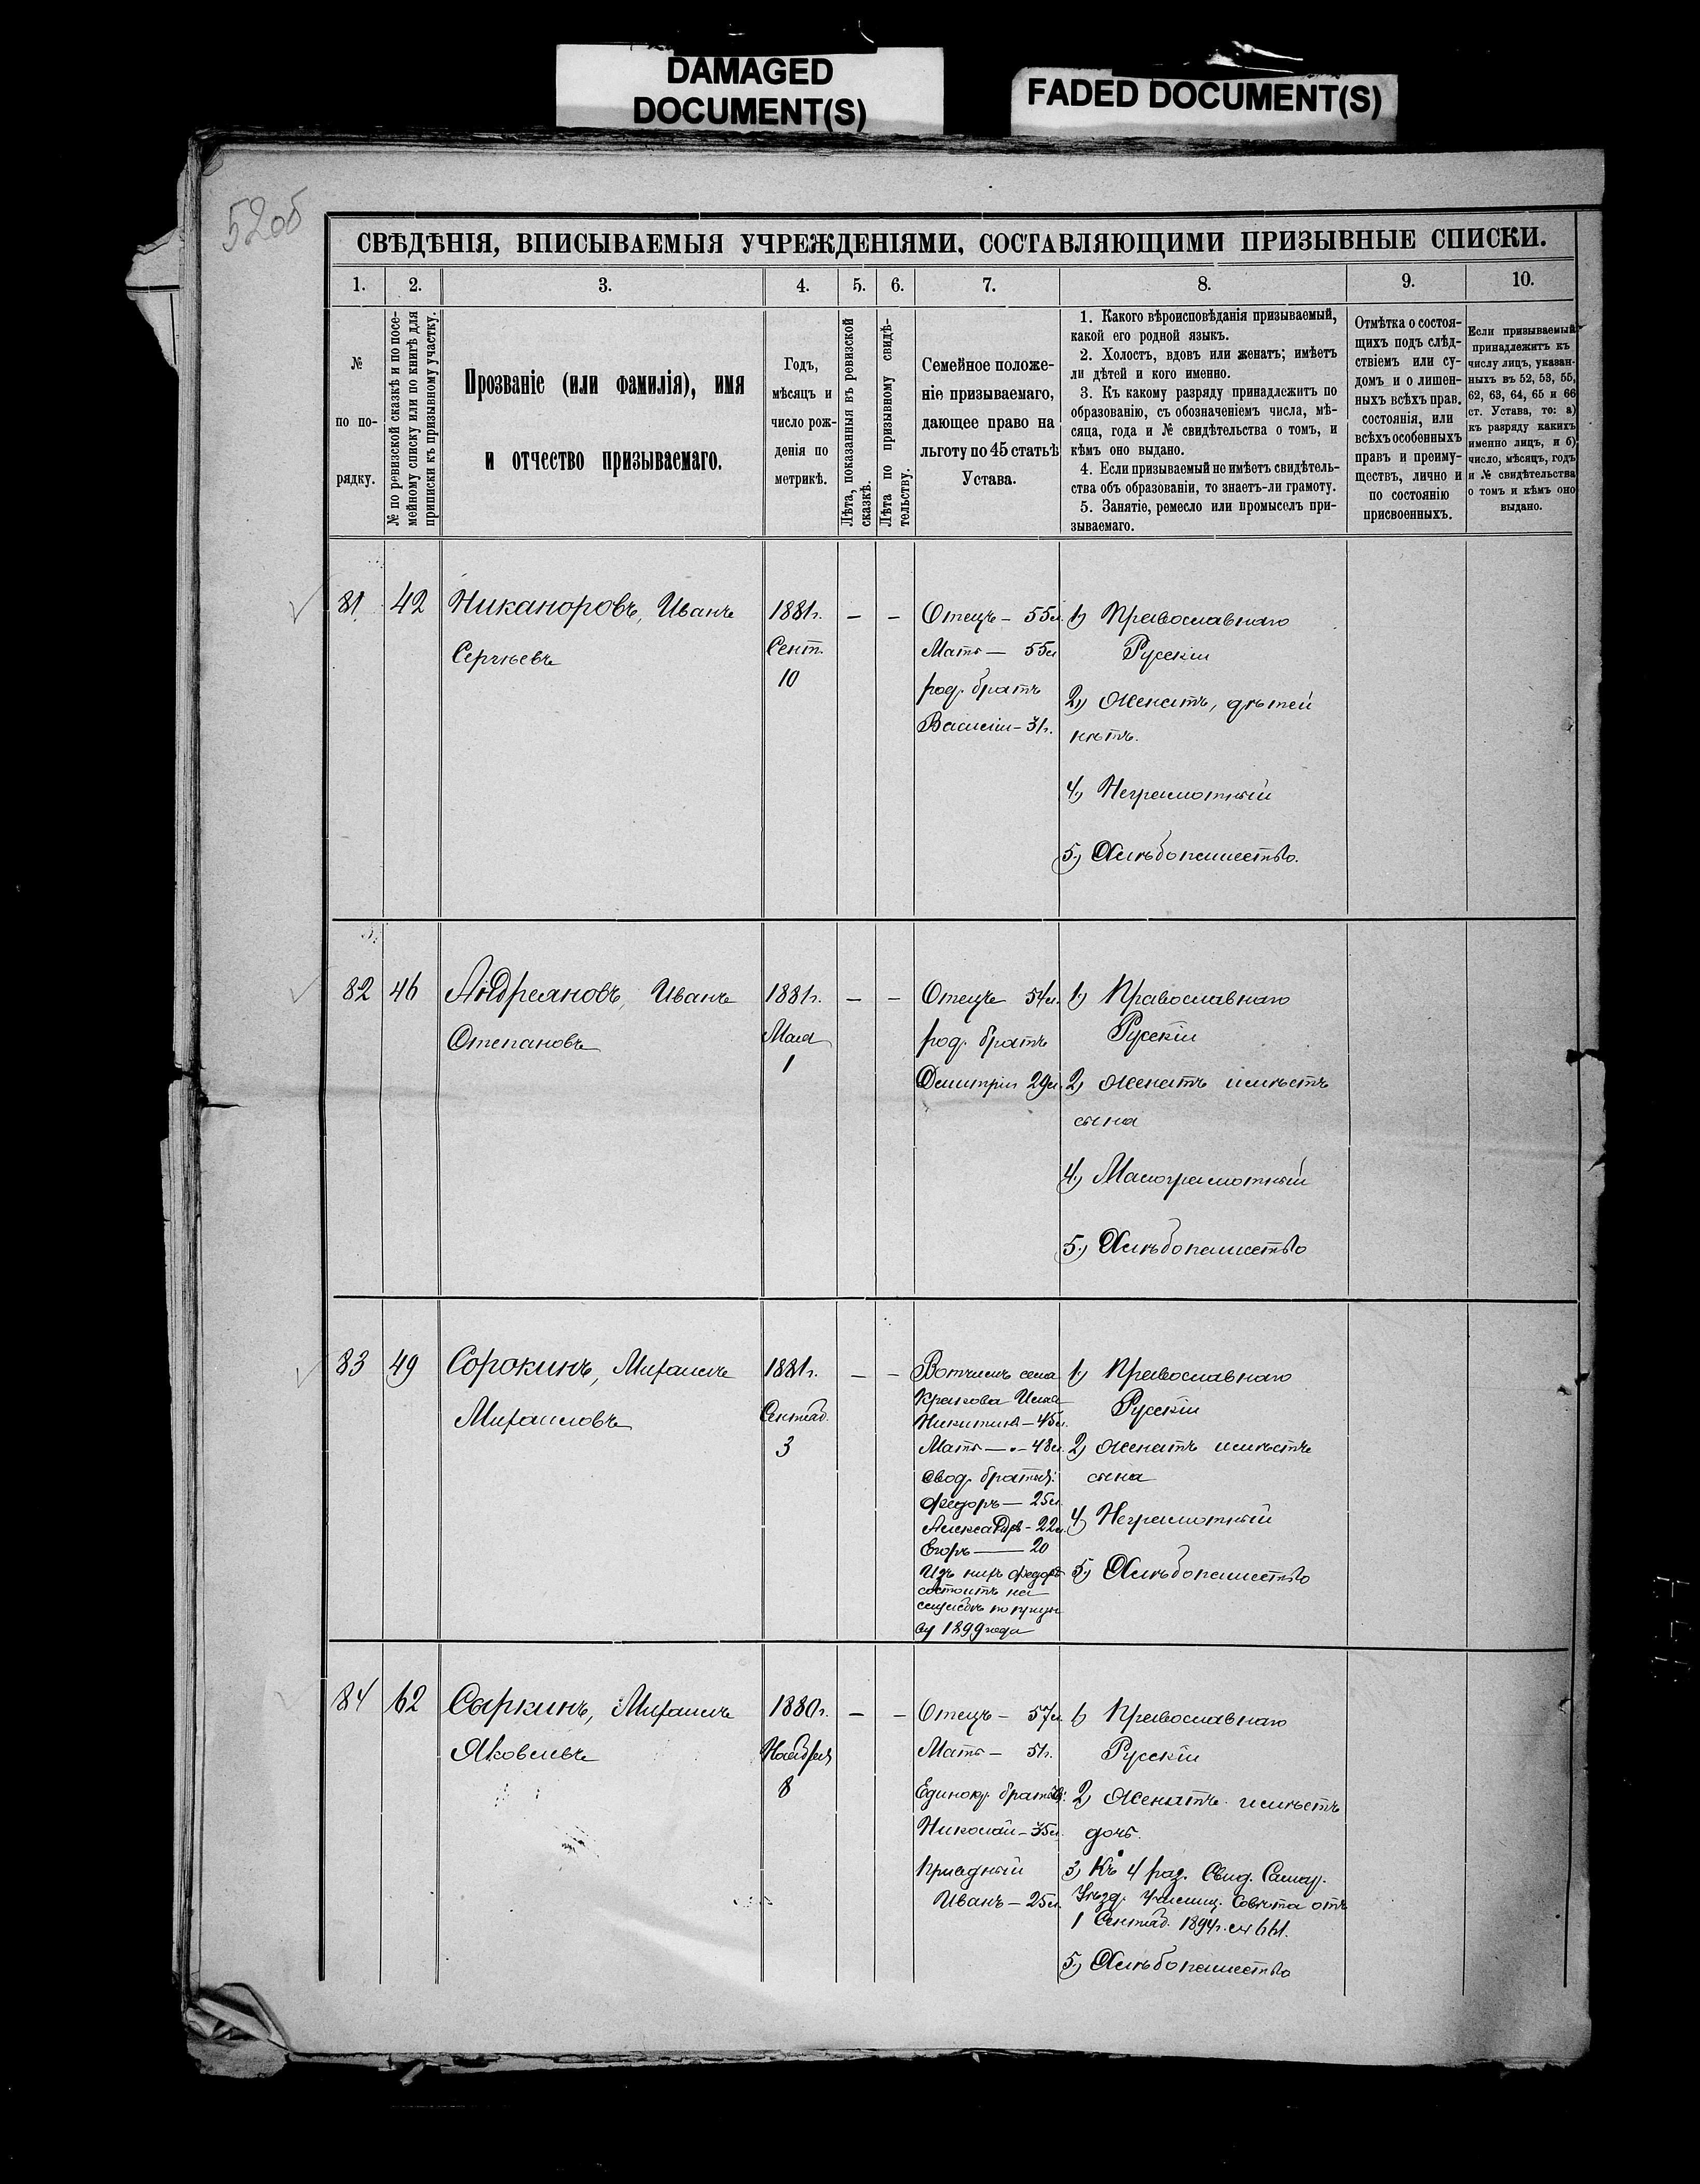 DAMAGED
DOCUMENT(S)
FADED DOCUMENT(S)
52об
СВѢДѢНІЯ, ВПИСЫВАЕМЫЯ УЧРЕЖДЕНІЯМИ, СОСТАВЛЯЮЩИМИ ПРИЗЫВНЫЕ СПИСКИ.
1. 2. 3. 4. 5. 6. 7. 8. 9. 10.
№
по по-
рядку.
№ по ревизской сказкѣ и по посе-
мейному списку или по книгѣ для
приписки къ призывному участку.
Прозваніе (или фамилія), имя
и отчество призываемаго.
Годъ,
мѣсяцъ и
число рож-
денія по
метрикѣ.
Лѣта, показанныя въ ревизской
сказкѣ.
Лѣта по призывному свидѣ-
тельству.
Семейное положе-
ніе призываемаго,
дающее право на
льготу по 45 статьѣ
Устава.
1. Какого вѣроисповѣданія призываемый,
какой его родной языкъ.
2. Холостъ, вдовъ или женатъ; имѣетъ
ли дѣтей и кого именно.
3. Къ какому разряду принадлежитъ по
образованію, съ обозначеніемъ числа, мѣ-
сяца, года и № свидѣтельства о томъ, и
кѣмъ оно выдано.
4. Если призываемый не имѣетъ свидѣтель-
ства объ образованіи, то знаетъ-ли грамоту.
5. Занятіе, ремесло или промыселъ при-
зываемаго.
Отмѣтка о состоя-
щихъ подъ слѣд-
ствіемъ или су-
домъ и о лишен-
ныхъ всѣхъ прав.
состоянія, или
всѣхъ особенныхъ
правъ и преиму-
ществъ, лично и
по состоянію
присвоенныхъ.
Если призываемый
принадлежитъ къ
числу лицъ, указан-
ныхъ въ 52, 53, 55,
62, 63, 64, 65 и 66
ст. Устава, то: а)
къ разряду какихъ
именно лицъ, и б)
число, мѣсяцъ, годъ
и № свидѣтельства
о томъ и кѣмъ оно
выдано.
81 42 Никаноровъ, Иванъ
Сергѣевъ
1881г.
Сент.
10
— —
Отецъ — 55л.
Мать — 55л
род. братъ
Василій — 31г.
1) Православнаго
Русскій
2) Женатъ, дѣтей
нѣтъ.
4) Неграмотный
5) Хлѣбопашество.
82 46 Андреяновъ, Иванъ
Степановъ
1881г.
Мая
1
— —
Отецъ 54л.
род. братъ
Дмитрій 29л.
1) Православнаго
Русскій
2) Женатъ имѣетъ
сына
4) Малограмотный
5) Хлѣбопашество
83 49 Сорокинъ, Михаилъ
Михаиловъ
1881г.
Сентяб.
3
— —
Вотчимъ села
Никитинъ — 45л.
Мать — 48л.
свод. братья:
Федоръ — 25л.
Александръ — 22л.
Егоръ — 20
Изъ нихъ Федоръ
состоитъ на
службѣ по призы
ву 1899 года
1) Православнаго
Русскій
2) Женатъ имѣетъ
сына
4) Неграмотный
5) Хлѣбопашество
84 62 Сыркинъ, Михаилъ
Яковлевъ
1880г.
Ноября
8
— —
Отецъ — 57л.
Мать — 51г.
Единокр. братья:
Николай — 35л.
Иванъ — 25л.
1) Православнаго
Русскій
2) Женатъ имѣетъ
дочь.
3) Къ 4 раз. Свид. Самар.
Уѣзд. Училищ. Совѣта отъ
1 Сентяб. 1894г. № 661.
5) Хлѣбопашество